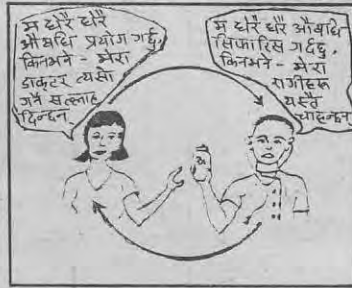 म धेरै धेरै
औषधि प्रयोग गर्दछु,
किनभने - मेरा
डाक्टर त्यसो
गर्न सल्लाह
दिन्छन्
म धेरै धेरै औषधि
सिफारिस गर्दछु,
किनभने - मेरा
रोगीहरू
यस्तै
चाहन्छन्